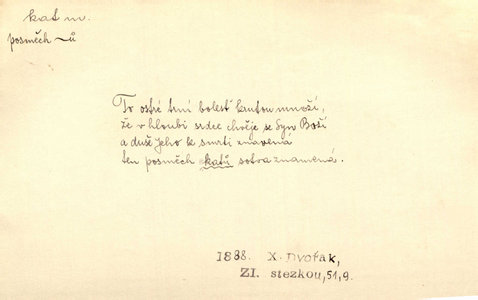 kat m.
posměch ~ů
To ostré trní bolest krutou množí,
že v hloubi srdce chvěje se Syn Boží
a duše Jeho k smrti znavená
ten posměch katů sotva znamená.
1888. X. Dvořák,
Zl. stezkou, 51, 9.